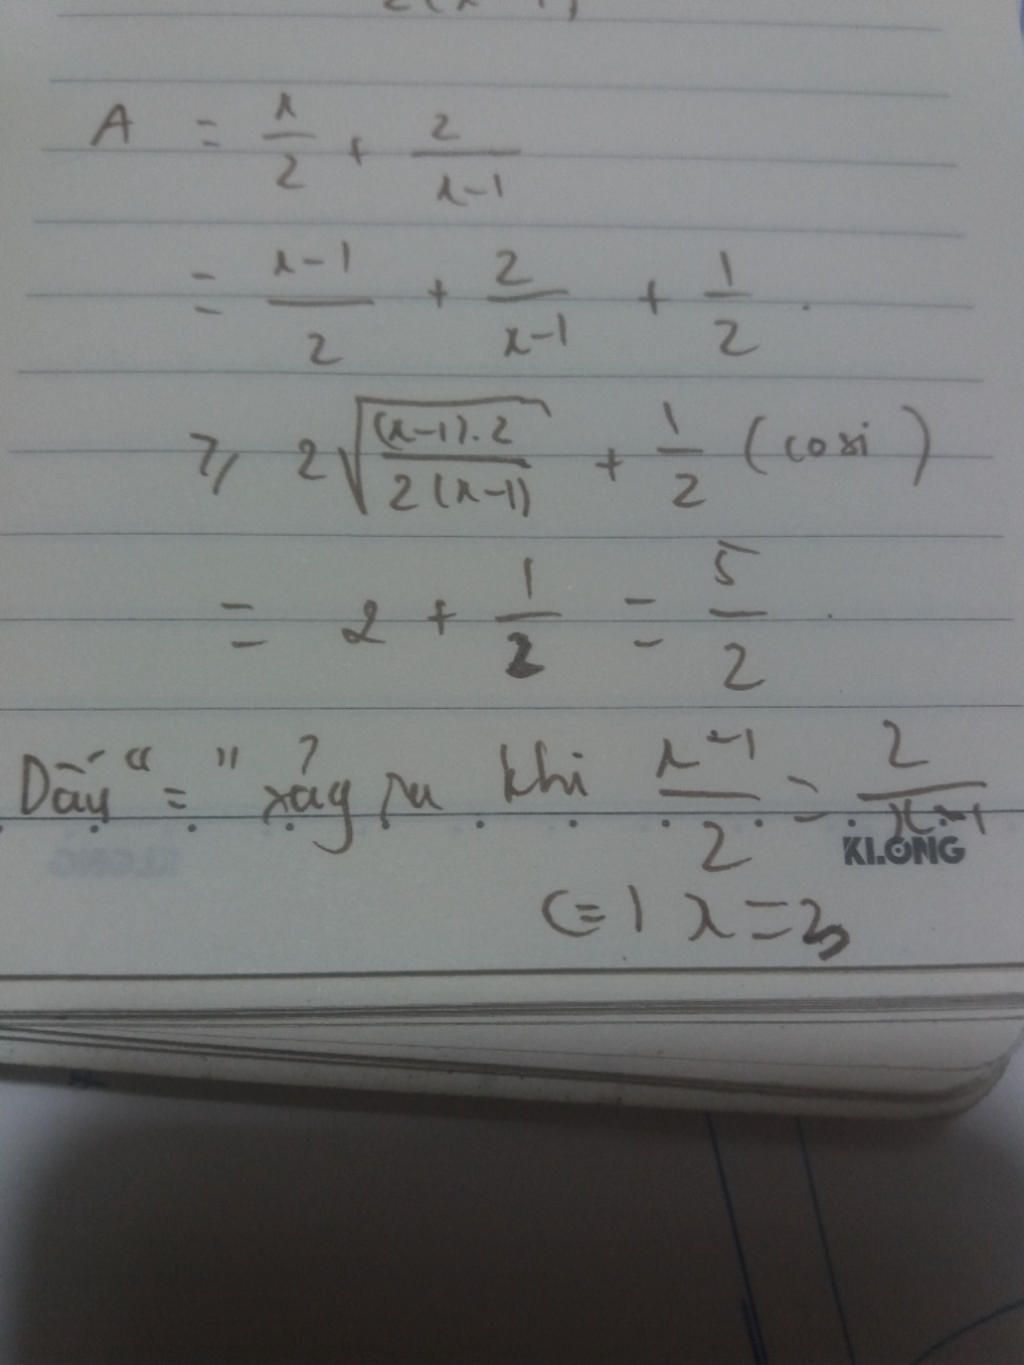 A = x/2 + 2/(x-1)
= (x-1)/2 + 2/(x-1) + 1/2 .
≥ 2√((x-1).2/2(x-1)) + 1/2 (cosi)
= 2 + 1/2 = 5/2 .
Dấu "=" xảy ra khi (x-1)/2 = 2/(x-1)
KLONG
<=> x = 3